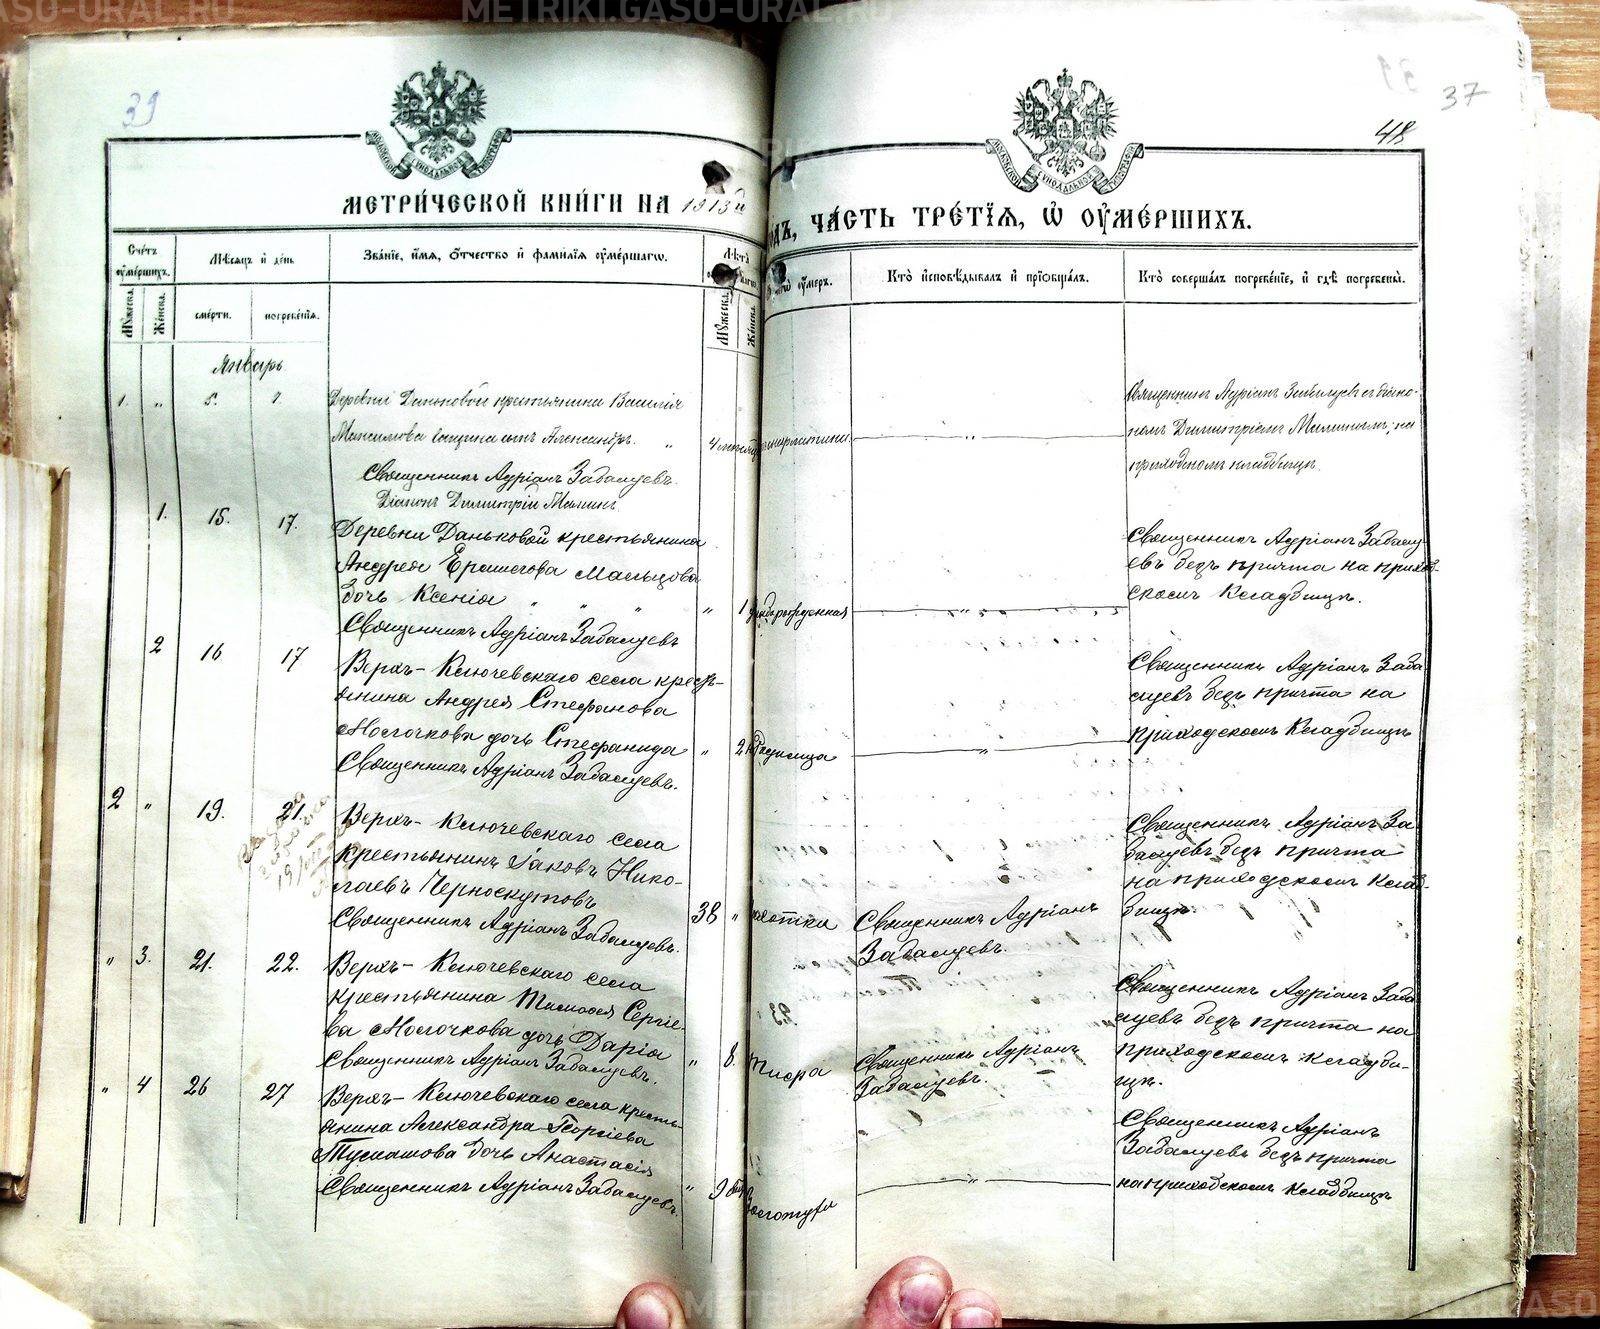 METRIKI.GASO-URAL.RU
39
37
48
МОСКОВСКОЙ СѴНОДАЛЬНОЙ ТИПОГРАФІИ
МЕТРИ́ЧЕСКОЙ КНИ́ГИ НА 1913й
ГОДЪ, ЧА́СТЬ ТРЕ́ТІЯ, Ѽ ОУ҆МЕ́РШИХЪ.
Сче́тъ оу҆ме́ршихъ.
Мꙋ́жеска.
Же́нска.
Мѣ́сяцъ и҆ де́нь
сме́рти.
погребе́нія.
Зва́ніе, и҆́мя, ѻ҆́тчество и҆ фами́лія оу҆ме́ршагѡ.
Лѣ́та
Мꙋ́жеска.
Же́нска.
оу҆́меръ.
Кто̀ и҆сповѣ́дывалъ и҆ пріѡбща́лъ.
Кто̀ соверша́лъ погребе́ніе, и҆ гдѣ̀ погребены̀.
Январь
1. " 5. 7.
Деревни Даньковой крестьянина Василія
Максимова сынъ Александръ. "
4
Священникъ Адріанъ Забалуевъ съ діако-
номъ Димитріемъ Милинымъ, на
приходскомъ кладбищѣ.
Священникъ Адріанъ Забалуевъ.
Діаконъ Димитрій
1. 15. 17.
Деревни Даньковой крестьянина
Андрея Мальцова
дочь Ксенія " " " " 1
Священникъ Адріанъ Забалуевъ
Священникъ Адріанъ Забалу-
евъ безъ причта на приход-
скомъ Кладбищѣ.
2 16 17
Верхъ-Ключевскаго села кресть-
янина Андрея Стефанова
Молочкова дочь Стефанида " 2 Родимца
Священникъ Адріанъ Забалуевъ.
Священникъ Адріанъ Заба
луевъ безъ причта на
приходскомъ Кладбищѣ
2 " 19. 21.
Верхъ-Ключевскаго села
крестьянинъ Іаковъ Нико-
лаевъ Черноскутовъ
Священникъ Адріанъ Забалуевъ.
38 " чахотки
Священникъ Адріанъ
Забалуевъ.
Священникъ Адріанъ За
балуевъ безъ причта
на приходскомъ Клад-
бищѣ.
" 3. 21. 22.
Верхъ-Ключевскаго села
крестьянина Тимофея Сергіе-
ва Молочкова дочь Дарія
Священникъ Адріанъ Забалуевъ.
" 8. Тифа
Священникъ Адріанъ
Забалуевъ.
Священникъ Адріанъ Заба
луевъ безъ причта на
приходскомъ кладби-
щѣ.
" 4 26 27
Верхъ-Ключевскаго села кресть-
янина Александра Георгіева
Тулашова дочь Анастасія
Священникъ Адріанъ Забалуевъ.
" 9 Золотухи
Священникъ Адріанъ
Забалуевъ безъ причта
на приходскомъ Кладбищѣ
METRIKI.GASO-URAL.RU